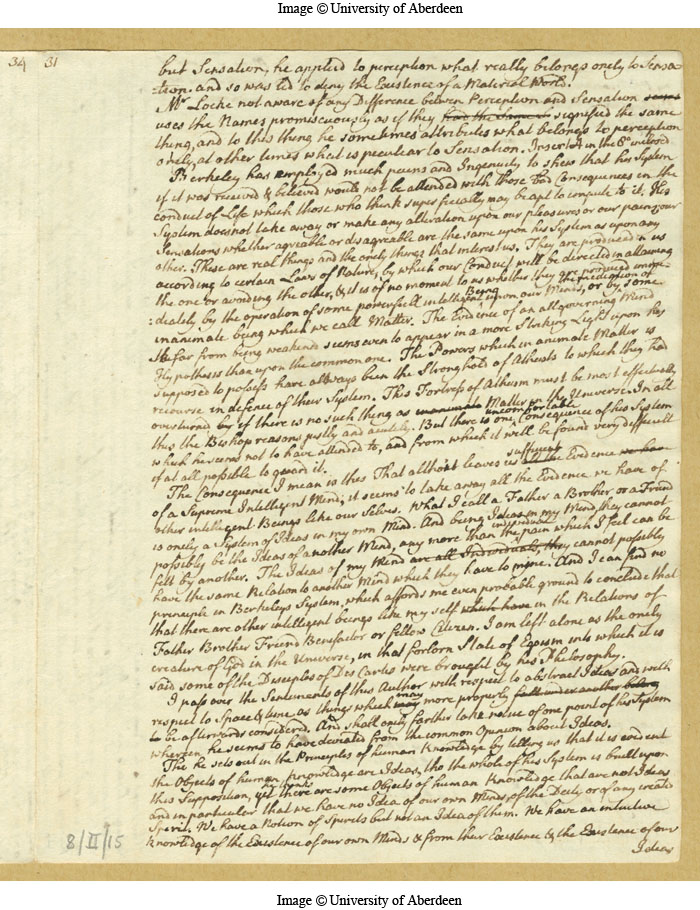 Image © University of Aberdeen
34 31
but Sensation, he applied to perception what really belongs onely to Sensa
:tion. and so was led to deny the Existence of a Material World.
Mr Locke not aware of any Difference between Perception and Sensation
uses the Names promiscuously as if they had the same signified the same
thing, and to this thing he sometimes attributes what belongs to perception
onely, at other times what is peculiar to Sensation. Insert A in the inclosed
Berkeley has employed much pains and Ingenuity to shew that his System
if it was received & believed would not be attended with those bad Consequences in the
conduct of Life which those who think superficially may be apt to impute to it. His
System does not take away or make any alteration upon our pleasures or our pains; our
Sensations whether agreable or disagreable are the same upon his System as upon any
other. These are real things and the onely things that interest us. They are produced in us
according to certain Laws of Nature, by which our Conduct will be directed in attaining
the one or avoiding the other, & it is of no moment to us whether they are produced imme
:diately by the operation of some powerfull intelligent Being upon our Minds, or by the mediation of some
inanimate being which we call Matter. The Evidence of an all governing Mind
so far from being weakend seems even to appear in a more Striking Light upon his
Hypothesis than upon the common one. The Powers which inanimate Matter is
supposed to possess have always been the Stronghold of Atheists to which they had
recourse in defence of their System. This Fortress of Atheism must be most effectually
overturned if there is no such thing as Matter in the Universe. In all
this the Bishop reasons justly and acutely. But there is one uncomfortable Consequence of his System
which he seems not to have attended to, and from which it will be found very difficult
if at all possible to guard it.
The Consequence I mean is this That altho it leaves us sufficient Evidence
of a Supreme Intelligent Mind; it seems to take away all the Evidence we have of
other intelligent Beings like our Selves. What I call a Father a Brother, or a Friend
is onely a System of Ideas in my own Mind. And being Ideas in my Mind they cannot
possibly be the Ideas of another Mind, any more than the individual pain which I feel can be
felt by another. The Ideas of my Mind are all Individuals, they cannot possibly
have the same Relation to another Mind which they have to mine. And I can find no
principle in Berkeleys System, which affords me even probable ground to conclude that
that there are other intelligent beings like my self which have in the Relations of
Father Brother Friend Benefactor or fellow Citizen. I am left alone as the onely
creature of God in the Universe, in that forlorn State of Egoism into which it is
said some of the Disciples of Des Cartes were brought by his Philosophy.
I pass over the Sentiments of this Author with respect to abstract Ideas and with
respect to Space & time as things which may more properly fall under another
be afterwards considered. And shall onely farther take notice of one point of his System
wherein he seems to have deviated from the common Opinion about Ideas.
Tho he sets out in the Principles of human Knowledge by telling us that it is evident
the Objects of human knowledge are Ideas, tho the whole of his System is built upon
this Supposition, yet there are some Objects of human Knowledge that are not Ideas
and in particular that we have no Idea of our own Minds, of the Deity or of any created
Spirit. We have a Notion of Spirits but not an Idea of them. We have an intuitive
knowledge of the Existence of our own Minds & from their Existence & the Existence of our
Ideas
8/II/15
Image © University of Aberdeen